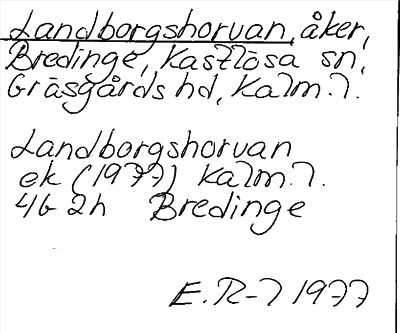 Landborgshorvan, åker,
Bredinge, Kastlösa sn,
Gräsgårds hd, Kalm. l.
Landborgshorvan
ek (1977) Kalm. l.
4G 2h Bredinge
E. R-l 1977